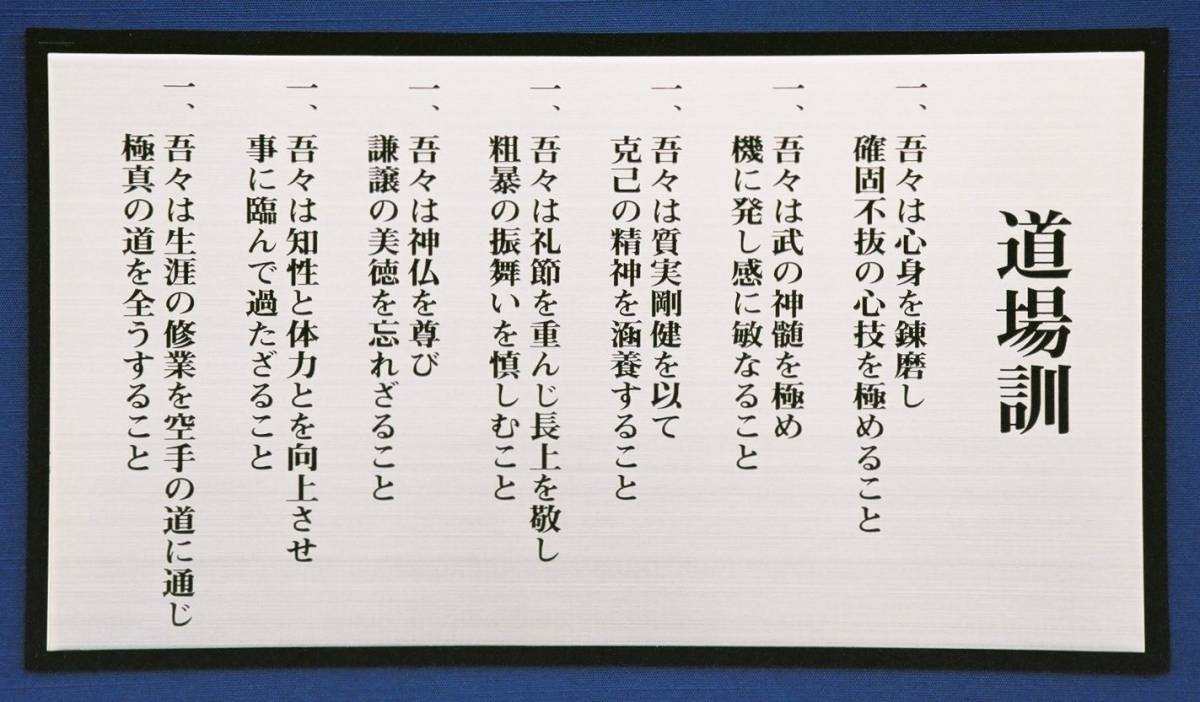 道場訓
一、吾々は心身を錬磨し
確固不抜の心技を極めること
一、吾々は武の神髄を極め
機に発し感に敏なること
一、吾々は質実剛健を以て
克己の精神を涵養すること
一、吾々は礼節を重んじ長上を敬し
粗暴の振舞いを慎しむこと
一、吾々は神仏を尊び
謙譲の美徳を忘れざること
一、吾々は知性と体力とを向上させ
事に臨んで過たざること
一、吾々は生涯の修業を空手の道に通じ
極真の道を全うすること